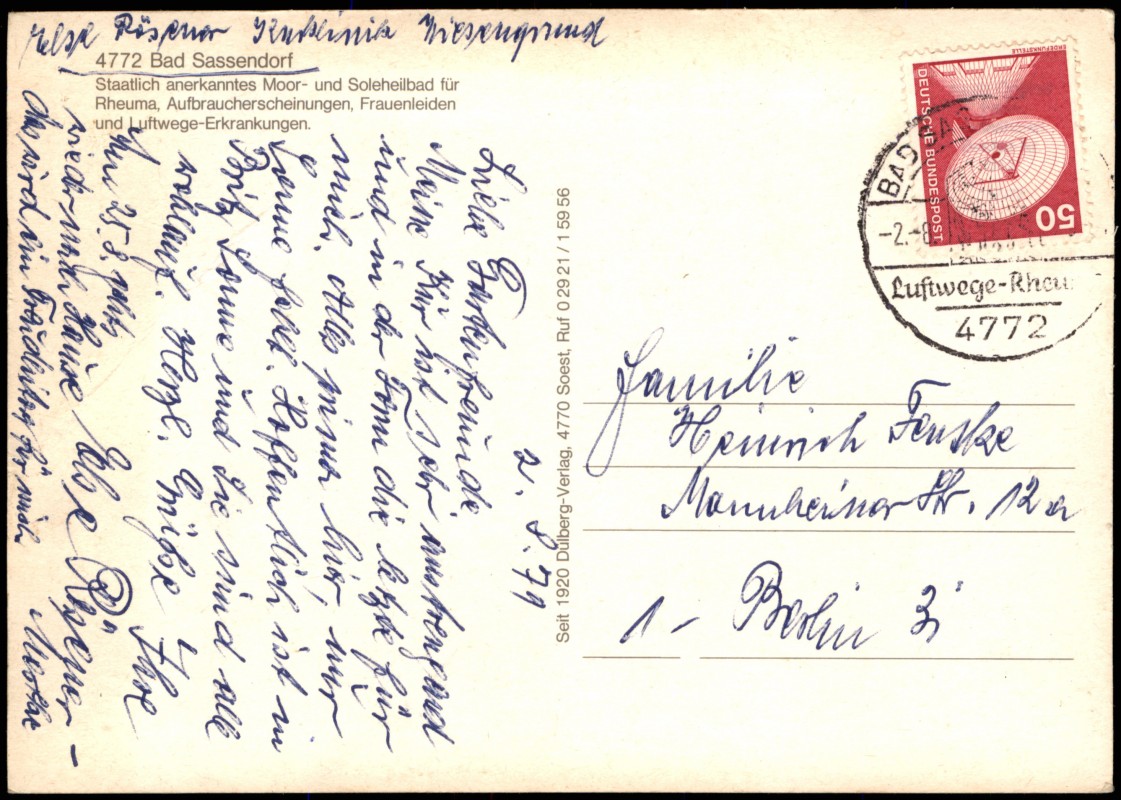 Else Rösener Kurklinik Wiesengrund
4772 Bad Sassendorf
Staatlich anerkanntes Moor- und Soleheilbad für
Rheuma, Aufbraucherscheinungen, Frauenleiden
und Luftwege-Erkrankungen.
2. 8. 79
Liebe Gartenfreunde
Meine Kur ist sehr anstrengend
und in der Form die letzte für
mich. Alles prima hier, nur
Sonne fehlt. Hoffentlich ist in
Britz Sonne und Sie sind alle
wohlauf. Herzl. Grüße Ihre
Else Rösener -
Am 25.8. gehts
wieder nach Hause
das wird ein Freudentag für mich
Seit 1920 Dülberg-Verlag, 4770 Soest, Ruf 0 29 21 / 1 59 56
ERDEFUNKSTELLE
DEUTSCHE BUNDESPOST
50
BAD SA
-2.-8
Luftwege-Rheu
4772
Familie
Heinrich Fenske
Mannheimer Str. 12 a
1 - Berlin 31